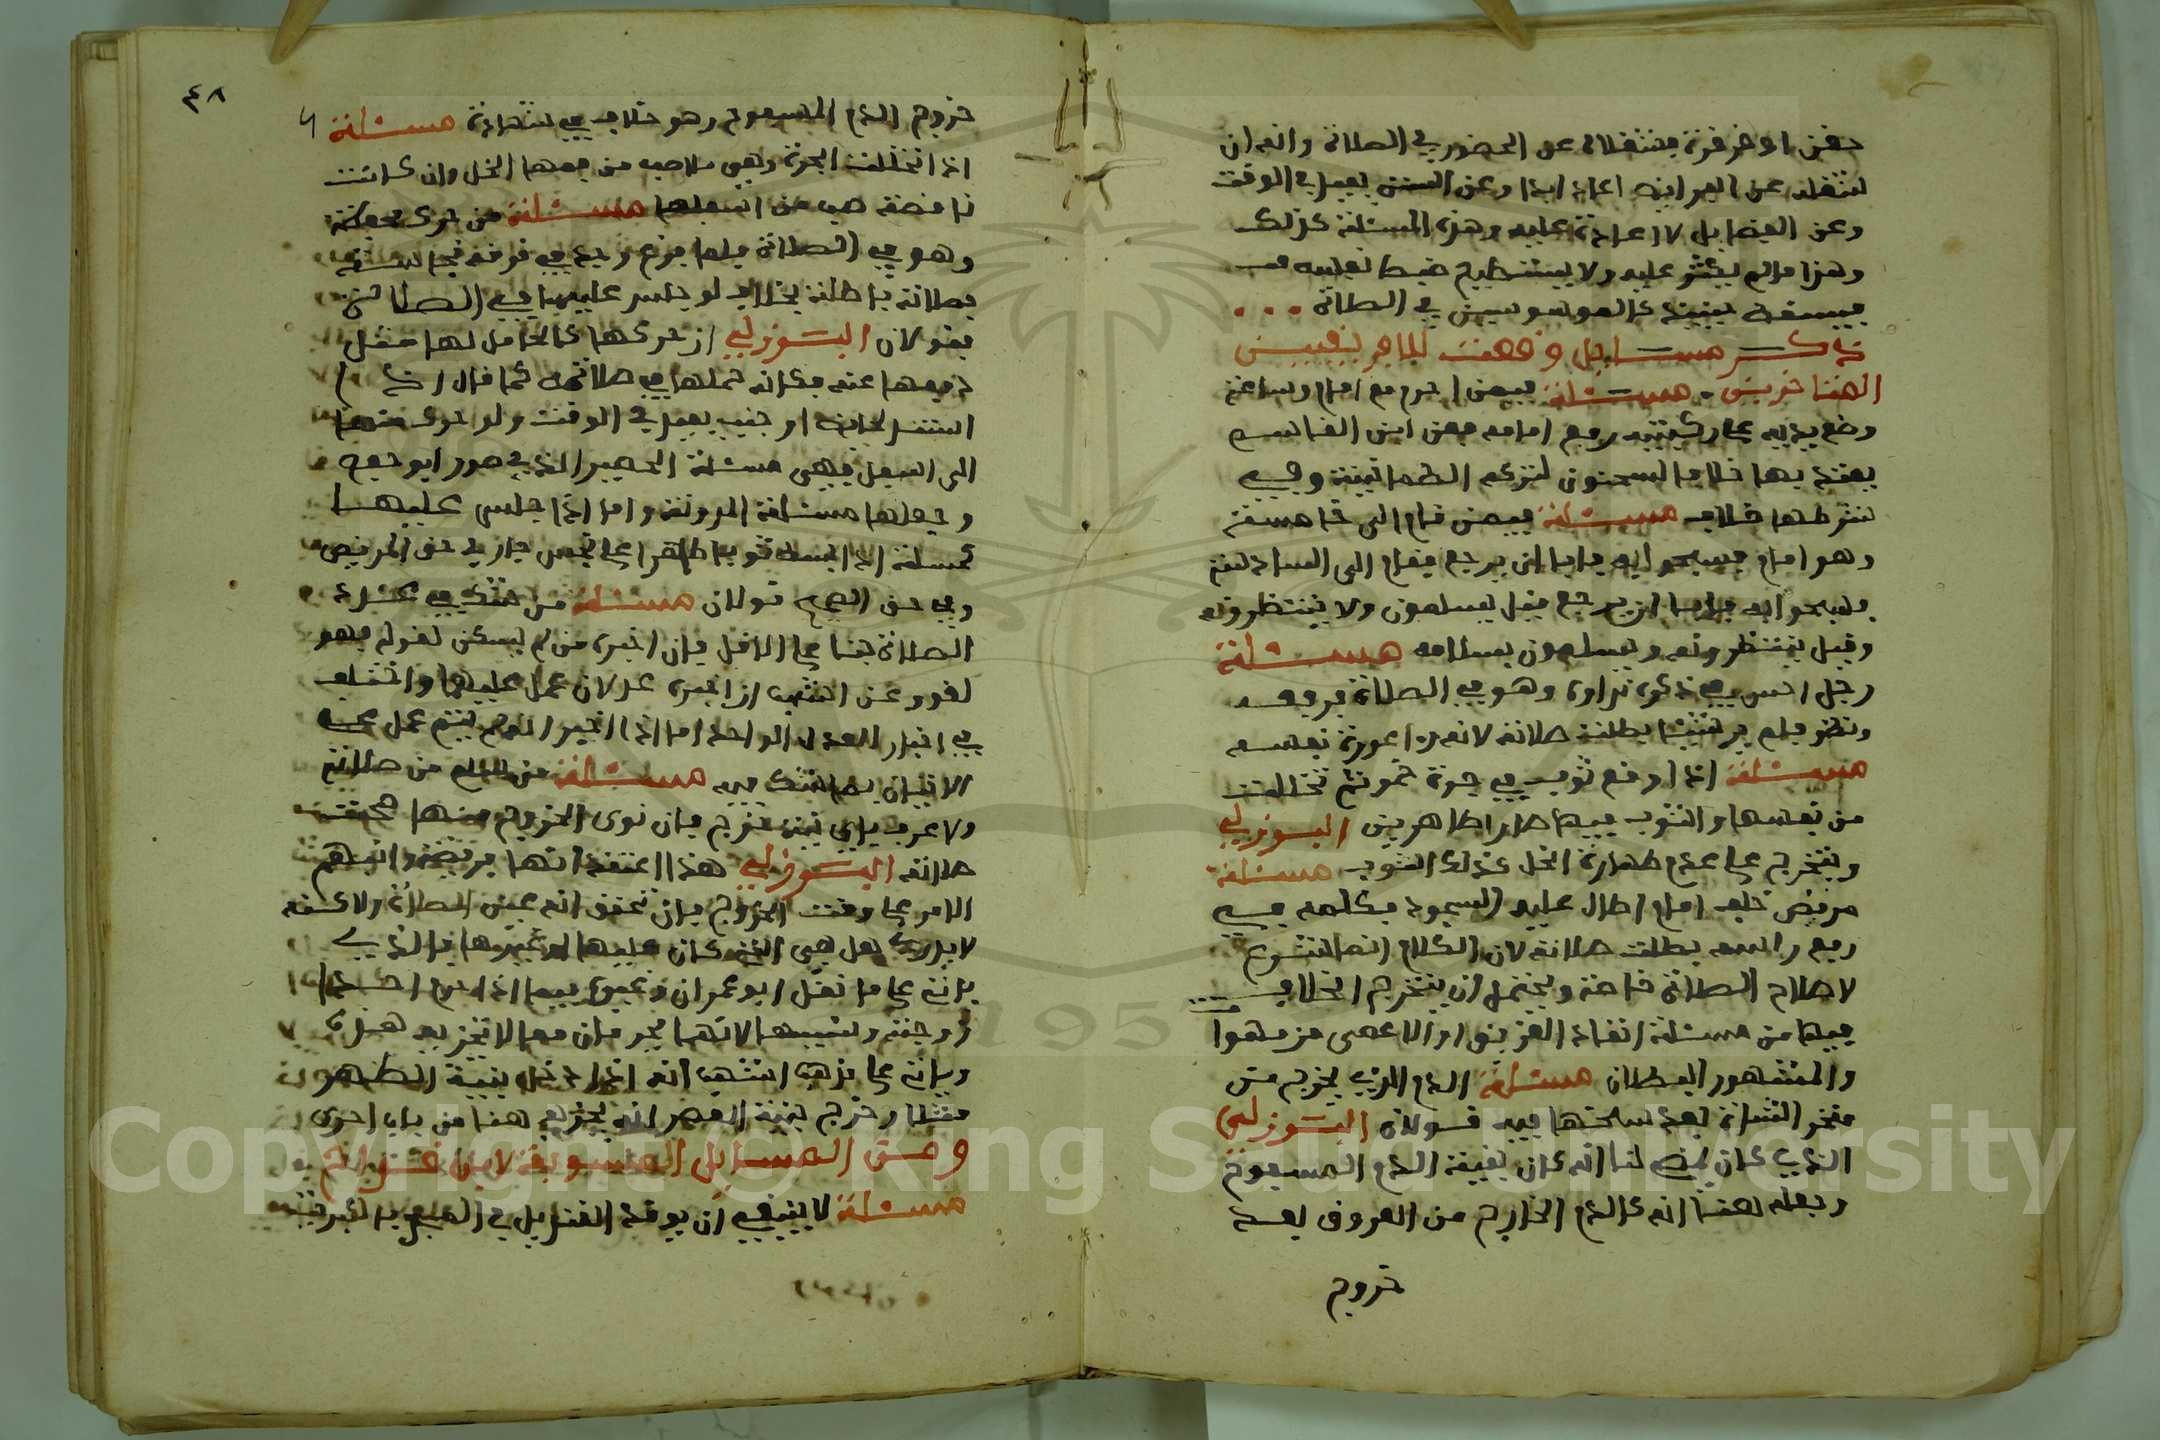 حقن او قرقرة يشتغلان عن الحضور في الصلاة وانه ان
اشتغل عن الفرايض اعاد ابدا وعن السنن يعيد في الوقت
وعن الفضايل لا اعادة عليه وهذه المسئلة كذلك
وهذا ما لم يكثر عليه ولا يستطيع ضبط نفسه
فيسقط حينئذ كالموسوسين في الصلاة
ذكر مسايل وقعت للافريقيين
المتاخرين مسئلة فيمن احرم مع امام وساعة
وضع يديه على ركبتيه رفع امامه فعن ابن القاسم
يعتد بها خلافا لسحنون لتركه الطمانينة وفي
شرطها خلاف مسئلة فيمن قام الى خامسة
وهو امام فسبحوا به فابا ان يرجع فقام الى السادسة
فسبحوا به فابا ان يرجع فقيل يسلمون ولا ينتظرونه
وقيل ينتظرونه ويسلمون بسلامه مسئلة
رجل احس في ذكره نداوة وهو في الصلاة فرفعه
ونظر فلم ير شيئا بطلت صلاته لانه راى عورة نفسه
مسئلة اذا وقع ثوب في جرة خمر ثم تخللت
من نفسها والثوب فيها صارا طاهرين البرزلي
ويتخرج على عدم طهارة الخل كذلك الثوب مسئلة
مريض خلف امام اطال عليه السجود فكلمه في
رفع راسه بطلت صلاته لان الكلام انما شرع
لاصلاح الصلاة خاصة ويحتمل ان يتخرج الخلاف
فيها من مسئلة انقاذ الغريق او الاعمى من مهواة
والمشهور البطلان مسئلة الدم الذي يخرج من
منحر الشاة بعد سلخها فيه قولان البرزلي
الذي كان يمضي لنا انه كان بقية الدم المسفوح
وبعضه لهفنا انه كالدم الخارج من العروق بعد
خروج
٤٨
خروج الدم المسفوح وهو خلاف في شهادة مسئلة
اذا تخللت الجرة وهي ملاصة من فمها الخل وان كانت
ناقصة صب من اسفلها مسئلة من حرك نجاسة
وهو في الصلاة فلما فرغ
فصلاته باطلة بخلاف لو جلس عليها في الصلاة
فقولان البرزلي ان حركها كالحامل لها فنقل
دفعها عنه فكانه حملها في صلاته كما قال اذا
استند لحائض او جنب يعيد في الوقت ولو حرك منها
الى اسفل فهي مسئلة الحصير الذي صور ابو حفص
وجعلها مسئلة المدونة واما اذا جلس عليها
كمسئلة اذا بسط ثوبا طاهرا على نجس جاز في حق المريض
وفي حق الصحيح قولان مسئلة من شك في عدد
الصلاة بنا على الاقل فان اخبره من لم يسكن لقوله فهو
لغو وعن اشهب ان اخبره عدلان عمل عليهما واختلف
في اخبار العدل الواحد اما اذا اخبر الامام
الاتيان بما شك فيه مسئلة من سلم من صلاته
ولا عرف باي نية خرج فان نوى الخروج منها صحت
صلاته البرزلي هذا اعتقد انها فريضة وانبهم
الامر على وقت الخروج فان تحقق انه عين الصلاة ولاكنه
لا يدري هل هي التي كان عليها او غيرها فالذي
ياتي على ما نقل ابو عمران وغيره فيما اذا
زوجته ونسيها لانهما يحرمان معا لا تجزيه هذه
وياتي على مذهب اشهب انه اذا دخل بنية الظهر
مثلا وخرج بنية العصر انه يجزيه هنا من باب احرى
ومن المسايل المنسوبة لابن قداح
مسئلة لا ينبغي ان يوقد القنديل في المسجد بالكبريت